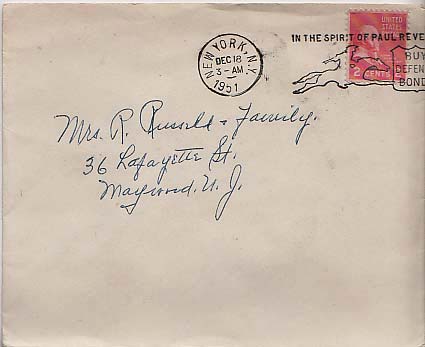 NEW YORK, N.Y.
DEC 18
3 - AM
1951
IN THE SPIRIT OF PAUL REVE
BUY
DEFEN
BOND
UNITED
STATES
2 CENTS
Mrs. R. Russell & Family.
36 Lafayette St.
Maywood, N. J.